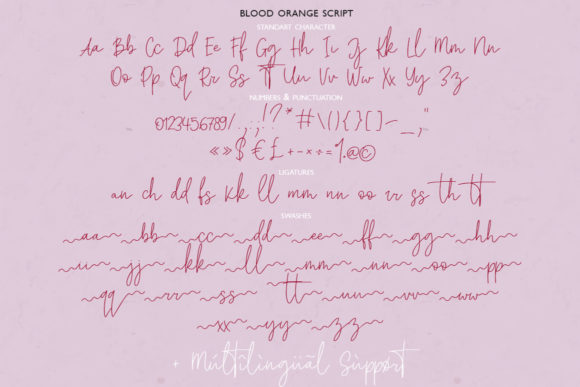 BLOOD ORANGE SCRIPT
STANDART CHARACTER
Aa Bb Cc Dd Ee Ff Gg Hh Ii Jj Kk Ll Mm Nn
Oo Pp Qq Rr Ss Tt Uu Vv Ww Xx Yy Zz
NUMBERS & PUNCTUATION
0123456789/.,:;..!?*#\(){}[]-_,"
«»$€£+-×÷=%@©
LIGATURES
an ch dd fs kk ll mm nn oo rr ss th tt
SWASHES
aa bb cc dd ee ff gg hh
ii jj kk ll mm nn oo pp
qq rr ss tt uu vv ww
xx yy zz
+ Múltîlïngüãl Sùppört